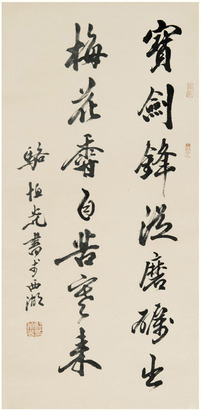 寶劍鋒從磨礪出
梅花香自苦寒來
駱恒光書于西湖